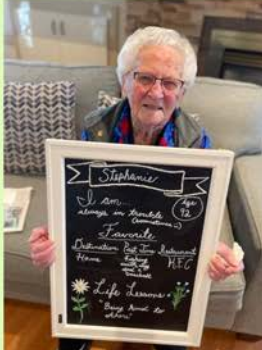 Stephanie
I am...
Age
92
always in trouble
(sometimes :)
Favorite
Destination Past Time Restaurant
Home Fishing K.F.C
with my
and a
Life Lessons
"Being kind to
others"